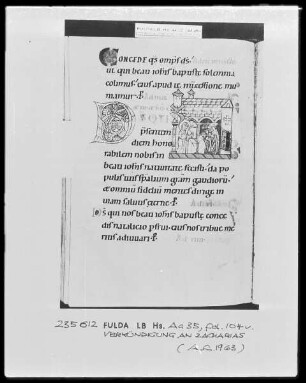 CONCEDE qs omps ds
ut qui beati iohis baptiste sollennia
colimus eius apud te
munamur
D S qui
psentem
diem hono
rabilem nobis in
beati iohis natiuitate fecisti da po
pulis tuis spitaliū grām gaudiorū
et omniū fideliū mentes dirige in
uiam salutis eterne P
Ds qui nos beati iohis baptiste conce
dis natalicio pfrui eius nos tribue me
ritis adiuuari P
235 612 FULDA LB Hs. Aa 35, fol. 104v.
VERKÜNDIGUNG AN ZACHARIAS
(A.F. 1963)